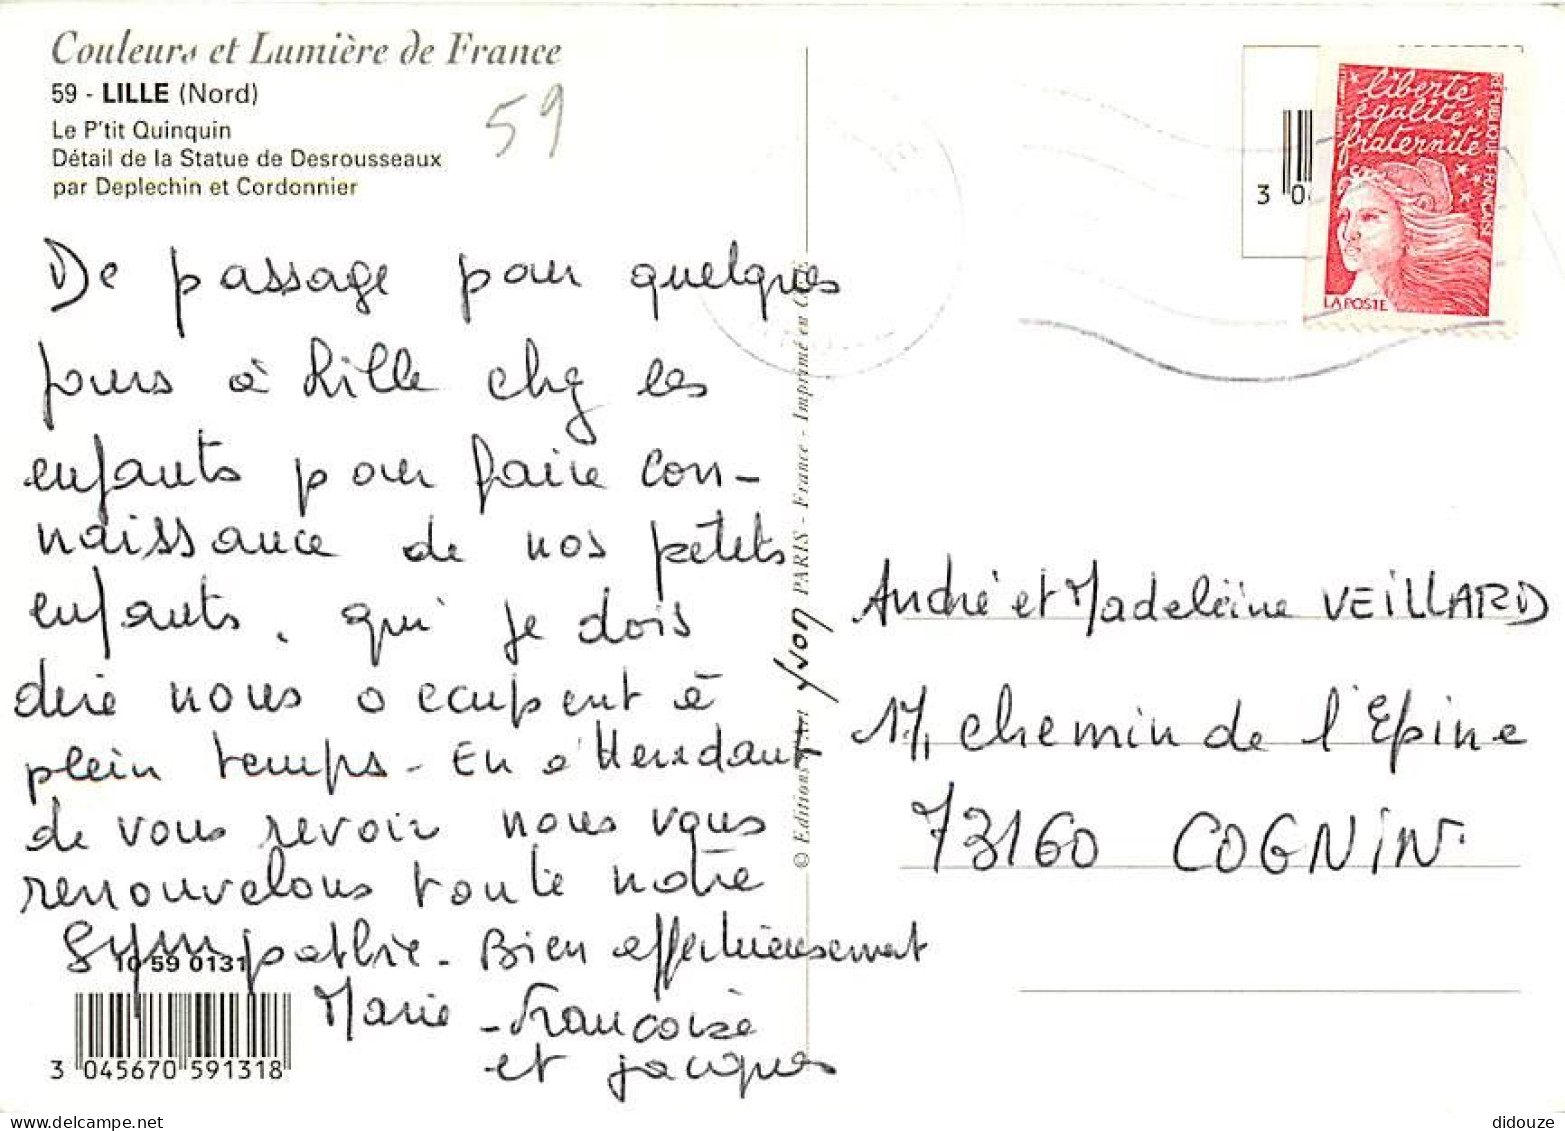 Couleurs et Lumière de France
59 - LILLE (Nord)
Le P'tit Quinquin
Détail de la Statue de Desrousseaux
par Deplechin et Cordonnier
59
De passage pour quelques
jours à Lille chez les
enfants pour faire con-
naissance de nos petits
enfants, qui je dois
dire nous occupent à
plein temps - En attendant
de vous revoir nous vous
renouvelons toute notre
Sympathie - Bien affectueusement
Marie - Françoise
et Jacques
10 59 0131
3 045670 591318
© Editions d'Art yvon PARIS - France - Imprimé en
liberté
égalité
fraternité
REPUBLIQUE FRANÇAISE
LA POSTE
3 0
André et Madeleine VEILLARD
17, chemin de l'Epine
73160 COGNIN
didouze